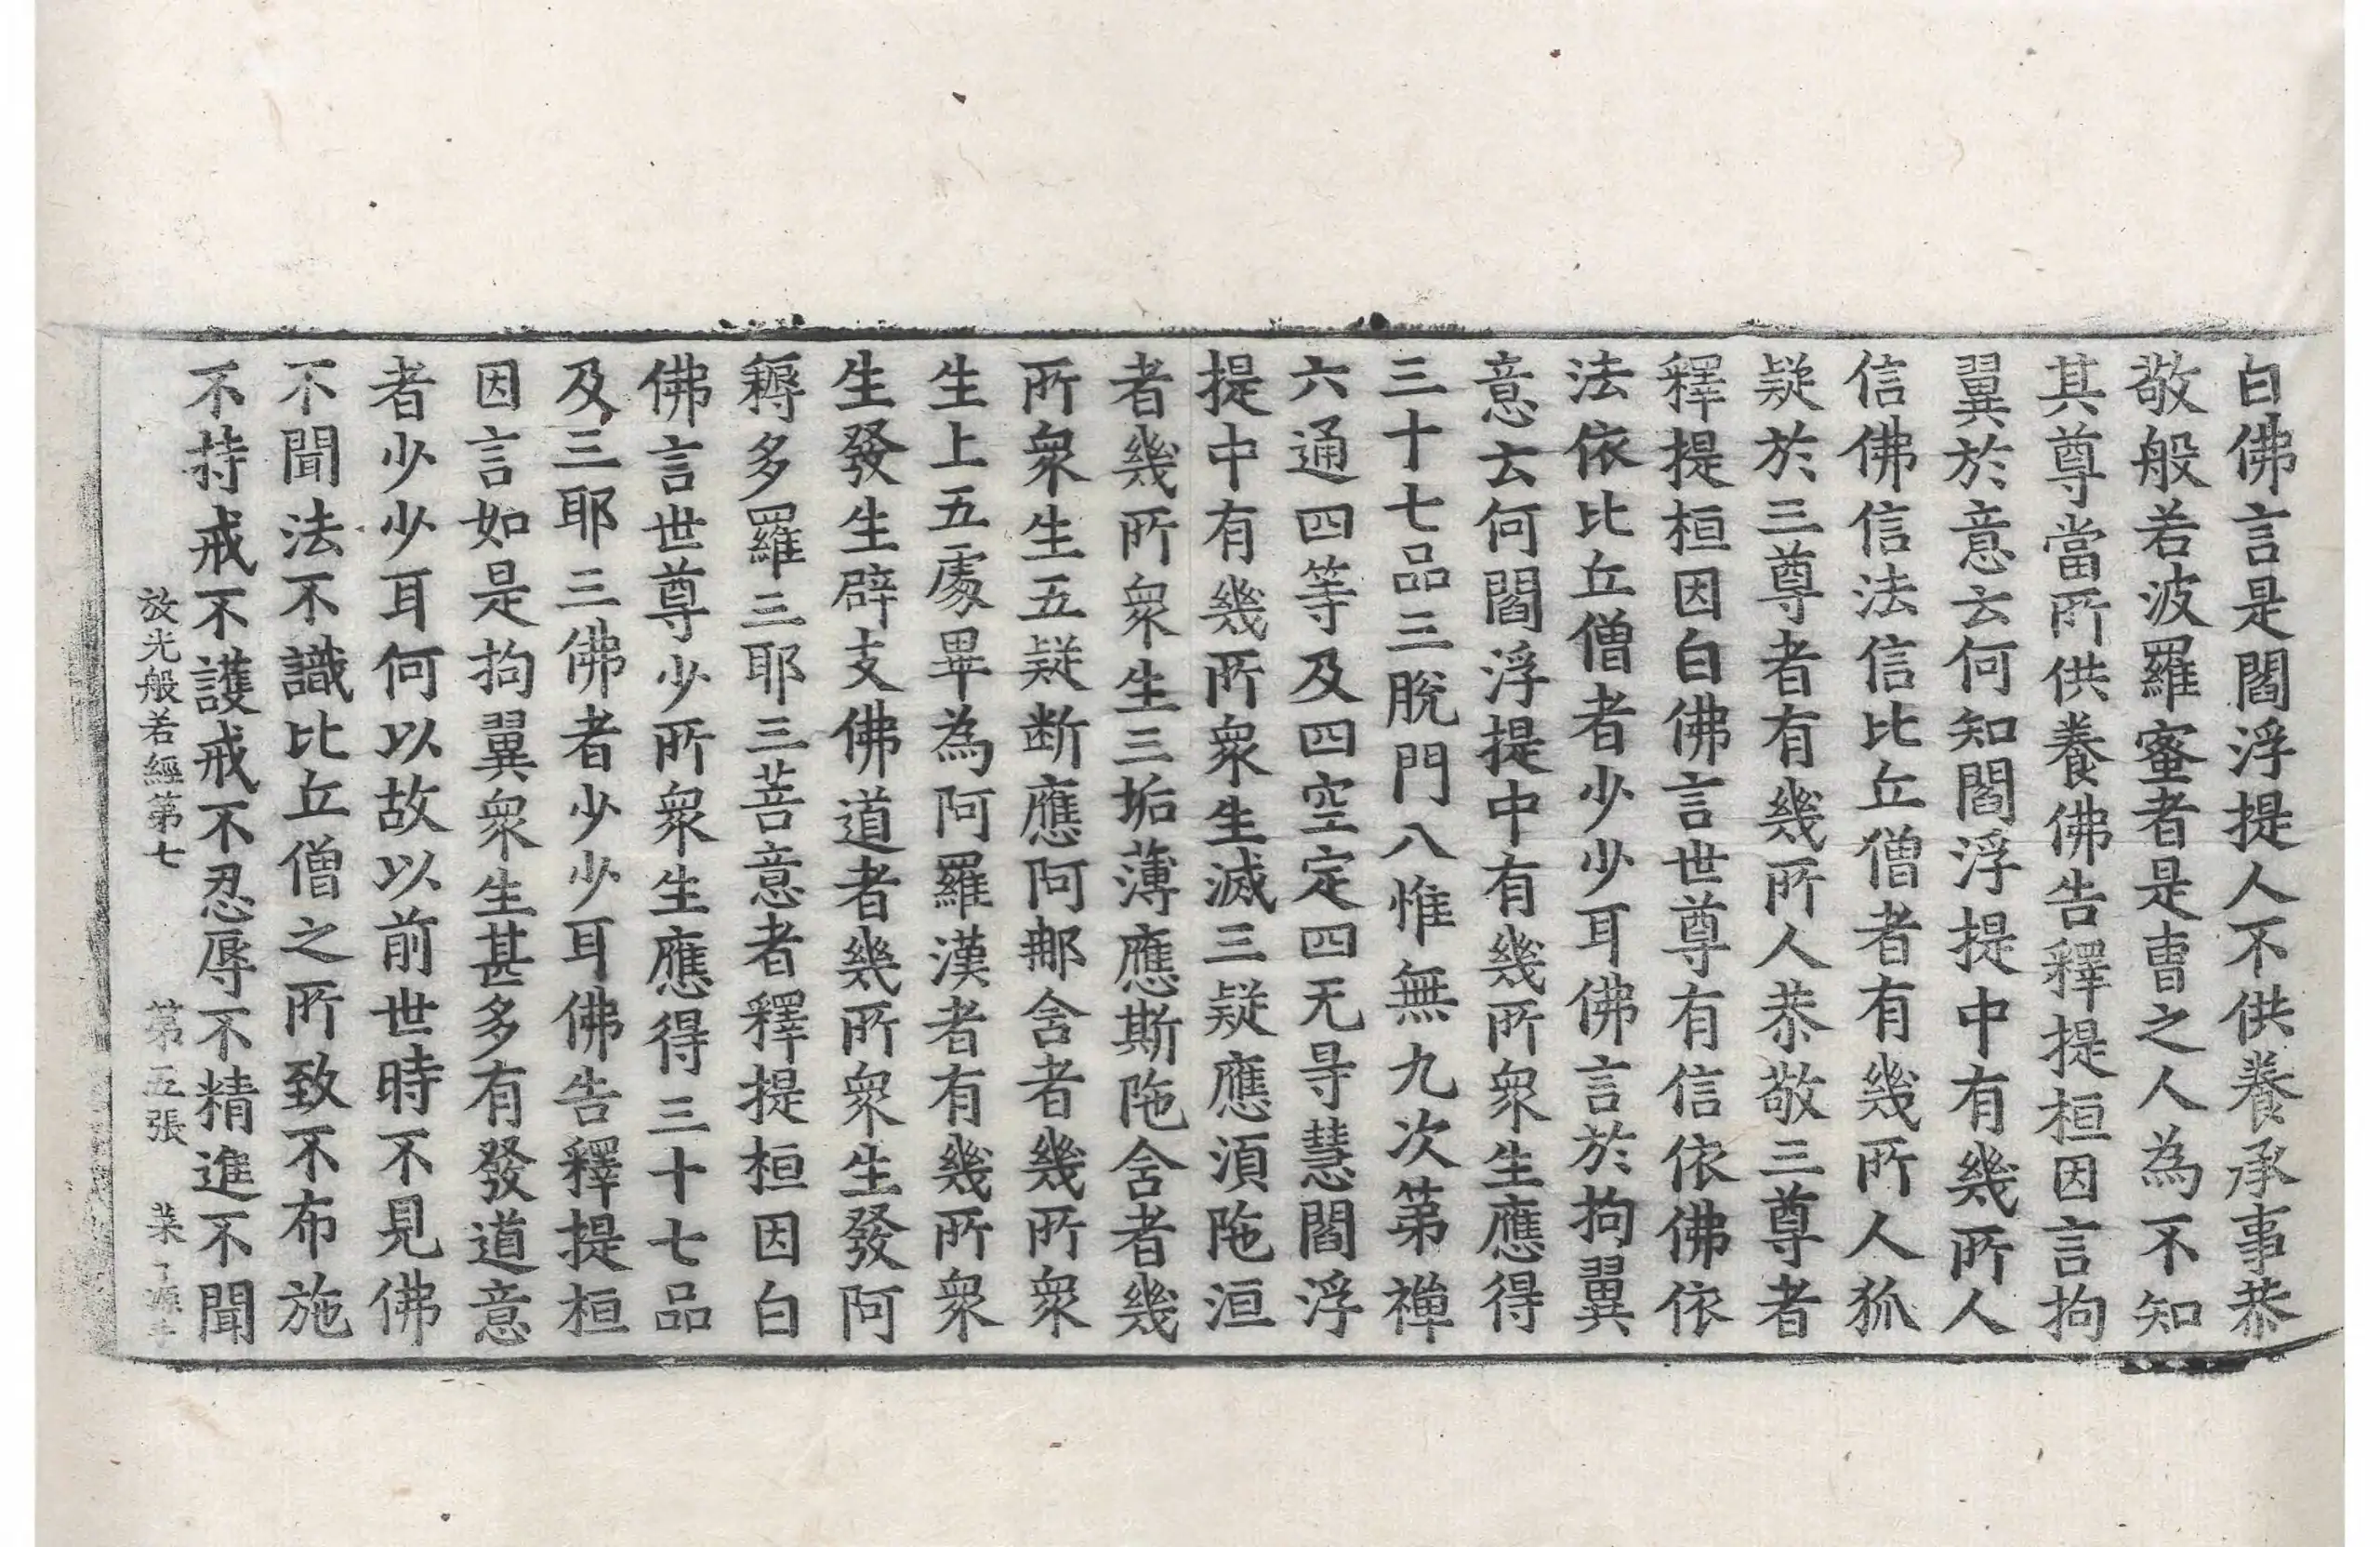 白佛言是閻浮提人不供養承事恭
敬般若波羅蜜者是曹之人為不知
其尊當所供養佛告釋提桓因言拘
翼於意云何知閻浮提中有幾所人
信佛信法信比丘僧者有幾所人狐
疑於三尊者有幾所人恭敬三尊者
釋提桓因白佛言世尊有信依佛依
法依比丘僧者少少耳佛言於拘翼
意云何閻浮提中有幾所衆生應得
三十七品三脫門八惟無九次第禪
六通四等及四空定四无㝵慧閻浮
提中有幾所衆生滅三疑應須陁洹
者幾所衆生三垢薄應斯陁含者幾
所衆生五疑断應阿那含者幾所衆
生上五處畢為阿羅漢者有幾所衆
生發生辟支佛道者幾所衆生發阿
耨多羅三耶三菩意者釋提桓因白
佛言世尊少所衆生應得三十七品
及三耶三佛者少少耳佛告釋提桓
因言如是拘翼衆生甚多有發道意
者少少耳何以故以前世時不見佛
不聞法不識比丘僧之所致不布施
不持戒不護戒不忍辱不精進不聞
放光般若經第七 第五張 菜